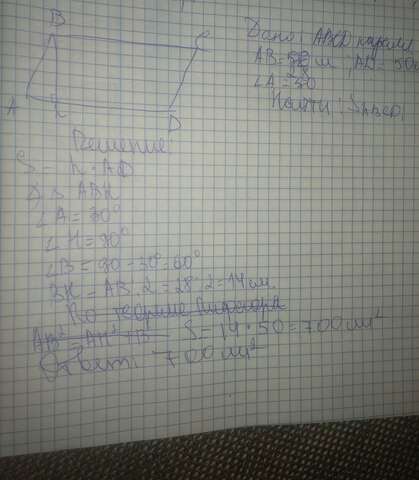 B C
A h D
Дано: ABCD парал
AB=28 м, AD=50м
∠A=30
Найти: SABCD
Решение:
S = h · AD
1) Δ ABH
∠A = 30°
∠H = 90°
∠B = 90 - 30° = 60°
BH = AB : 2 = 28 : 2 = 14 см.
По теореме Пифагора
AB² = AH² + B S = 14 · 50 = 700 см²
Ответ: 700 см²